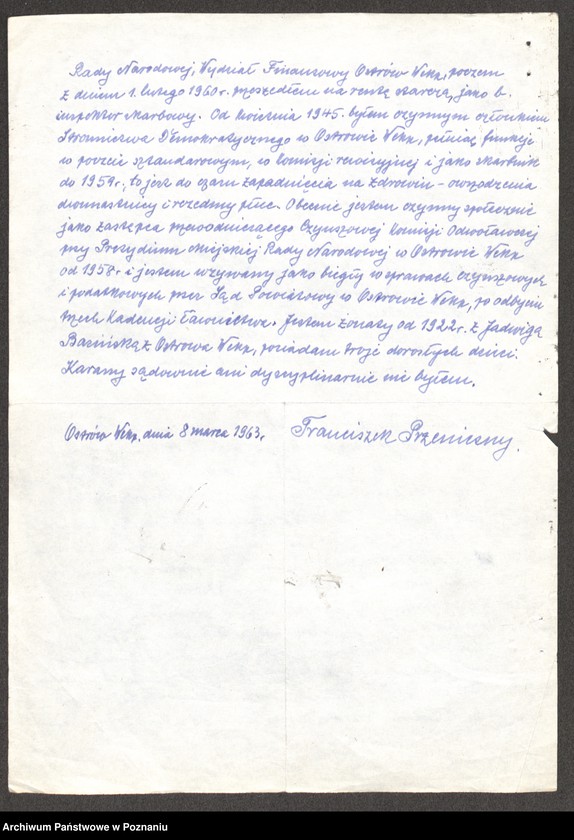 Rady Narodowej, Wydział Finansowy Ostrów Wlkp., poczem
z dniem 1. lutego 1960 r. przeszedłem na rentę starczą, jako b.
inspektor skarbowy. Od kwietnia 1945. byłem czynnym członkiem
Stronnictwa Demokratycznego w Ostrowie Wlkp., pełniąc funkcje
w poczcie sztandarowym, w komisji rewizyjnej i jako skarbnik
do 1954 r., to jest do czasu zapadnięcia na zdrowiu - owrzodzenia
dwunastnicy i rozedmy płuc. Obecnie jestem czynny społecznie
jako zastępca przewodniczącego Czynszowej Komisji Odwoławczej
przy Prezydium Miejskiej Rady Narodowej w Ostrowie Wlkp.
od 1958 r. i jestem wzywany jako biegły w sprawach czynszowych
i podatkowych przez Sąd Powiatowy w Ostrowie Wlkp., po odbyciu
trzech kadencji ławnictwa. Jestem żonaty od 1922 r. z Jadwigą
z Ostrowa Wlkp., posiadam troje dorosłych dzieci.
Karany sądownie ani dyscyplinarnie nie byłem.
Ostrów Wlkp. dnia 8 marca 1963 r. Franciszek Pszeniczny.
Archiwum Państwowe w Poznaniu